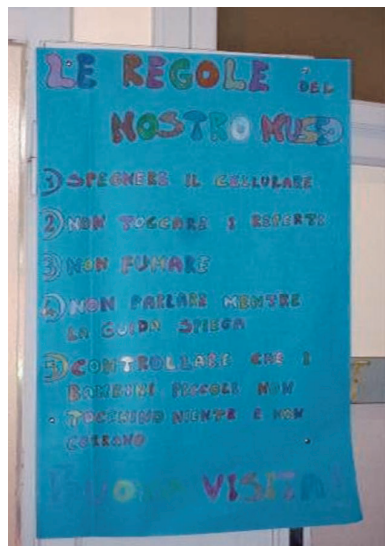 LE REGOLE DEL
NOSTRO MUSEO
1) SPEGNERE IL CELLULARE
2) NON TOCCARE I REPERTI
3) NON FUMARE
4) NON PARLARE MENTRE
LA GUIDA SPIEGA
5) CONTROLLARE CHE I
BAMBINI PICCOLI NON
TOCCHINO NIENTE E NON
CORRANO
BUONA VISITA!